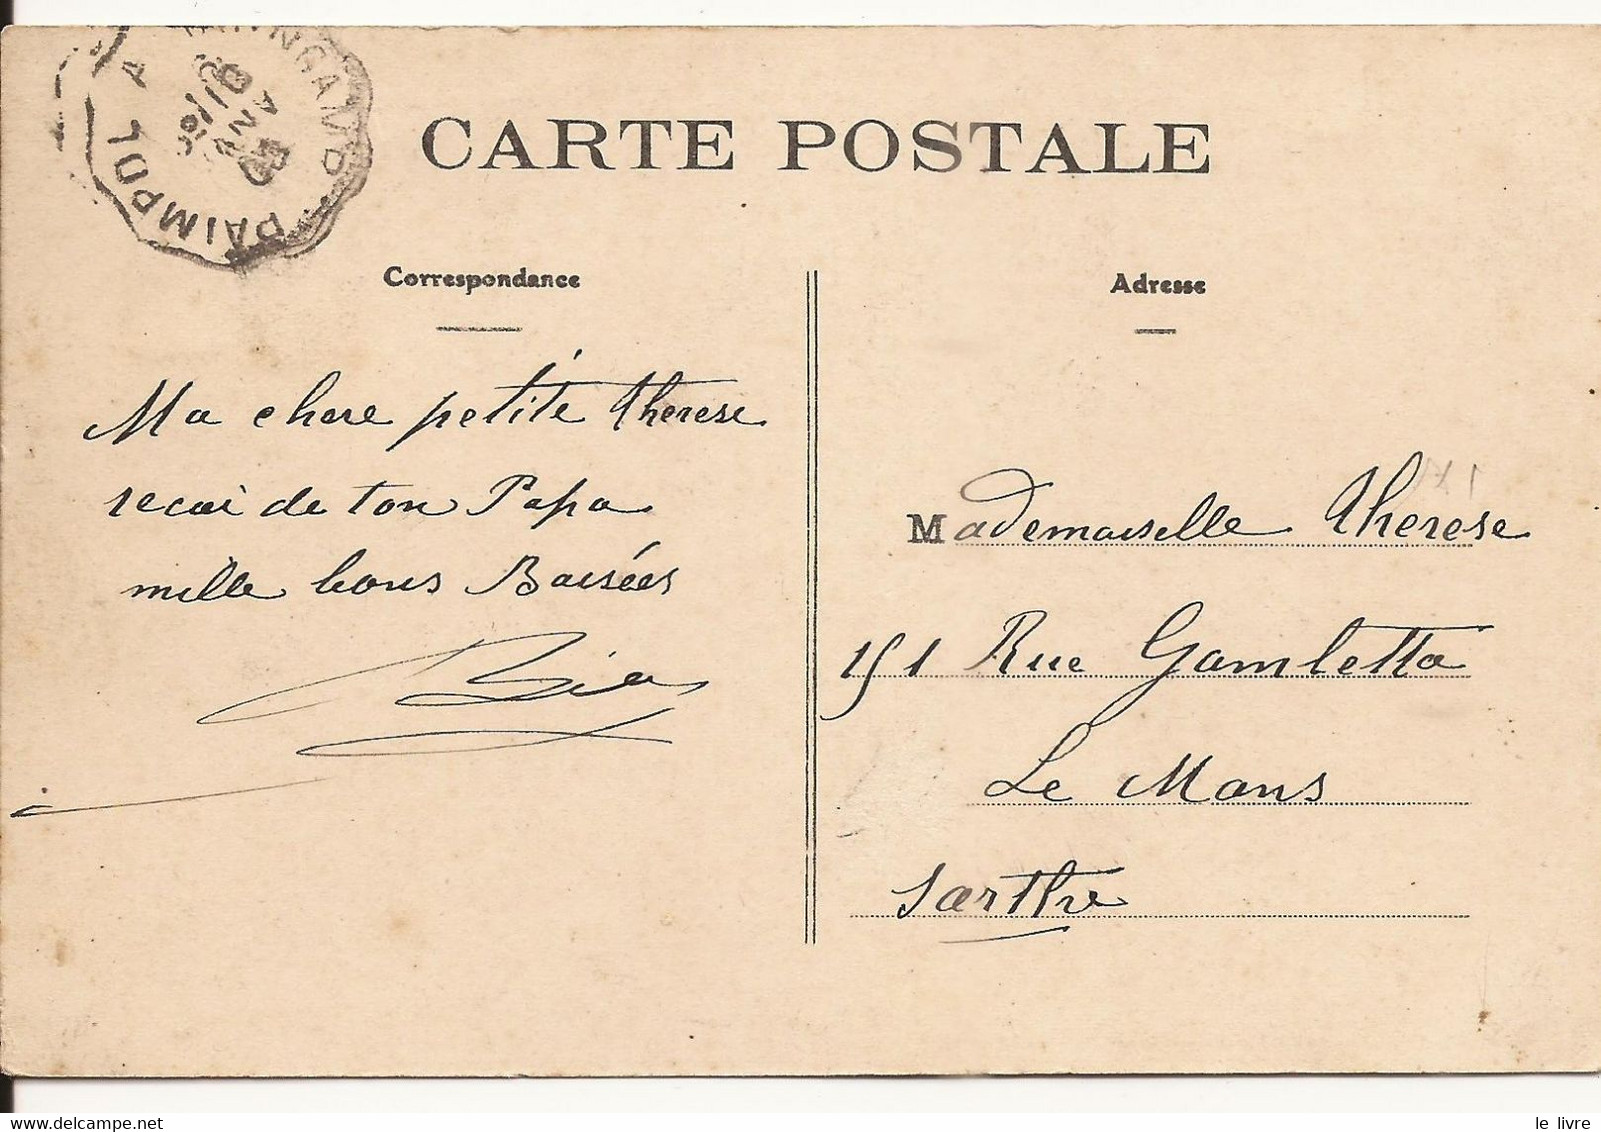 PAIMPOL A GUINGAMP
CARTE POSTALE
Correspondance
Ma chere petite therese
recoi de ton Papa
mille bons Baisées
Adresse
Mademoiselle therese
151 Rue Gambetta
Le Mans
Sarthe
le livre